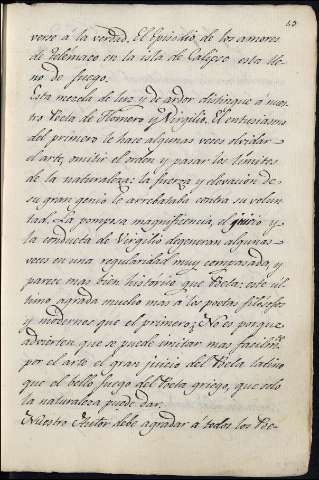 43
verse à la verdad. El Episodio, de los amores
de Telémaco en la isla de Calipso esta lle-
no de fuego.
Esta mezcla de luz y de ardor distingue á nues-
tro Poeta de Homero y Virgilio. El entusiasmo
del primero le hace algunas veces olvidar
el arte, omitir el orden y pasar los límites
de la naturaleza: la fuerza y elevacion de
su gran genio le arrebataba contra su volun-
tad. La pomposa magnificencia, el juicio y
la conducta de Virgilio degeneran algunas
veces en una regularidad muy compasada, y
parece mas bien historico que Poeta: este úl-
timo agrada mucho más á los poetas filósofos
y modernos que el primero; No es porque
advierten que se puede imitar mas facilmte
por el arte el gran juicio del Poeta latino
que el bello fuego del Poeta griego, que solo
la naturaleza puede dar.
Nuestro Autor debe agradar á todos los Poe-